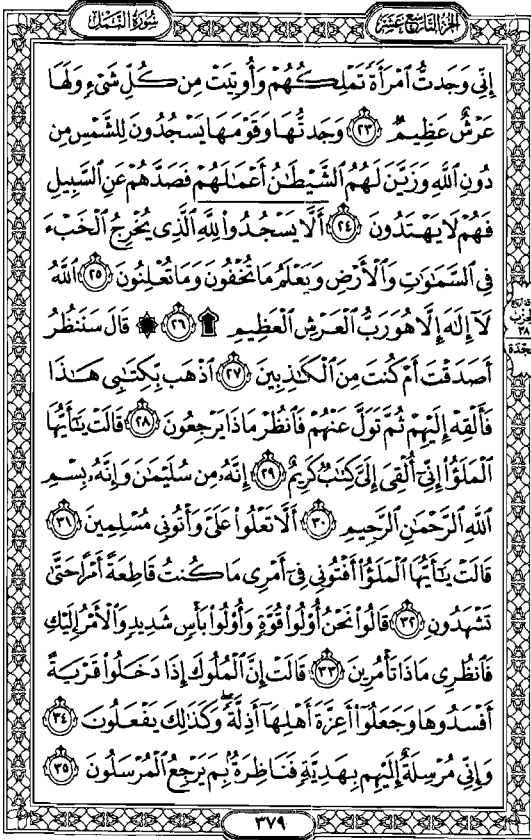 سُورَةُ النَّمْلِ
الجُزْءُ التَّاسِعَ عَشَرَ
إِنِّى وَجَدتُّ ٱمْرَأَةً تَمْلِكُهُمْ وَأُوتِيَتْ مِن كُلِّ شَىْءٍ وَلَهَا
عَرْشٌ عَظِيمٌ ٢٣ وَجَدتُّهَا وَقَوْمَهَا يَسْجُدُونَ لِلشَّمْسِ مِن
دُونِ ٱللَّهِ وَزَيَّنَ لَهُمُ ٱلشَّيْطَٰنُ أَعْمَٰلَهُمْ فَصَدَّهُمْ عَنِ ٱلسَّبِيلِ
فَهُمْ لَا يَهْتَدُونَ ٢٤ أَلَّا يَسْجُدُوا۟ لِلَّهِ ٱلَّذِى يُخْرِجُ ٱلْخَبْءَ
فِى ٱلسَّمَٰوَٰتِ وَٱلْأَرْضِ وَيَعْلَمُ مَا تُخْفُونَ وَمَا تُعْلِنُونَ ٢٥ ٱللَّهُ
لَآ إِلَٰهَ إِلَّا هُوَ رَبُّ ٱلْعَرْشِ ٱلْعَظِيمِ ۩ ٢٦ ۞ قَالَ سَنَنظُرُ
أَصَدَقْتَ أَمْ كُنتَ مِنَ ٱلْكَٰذِبِينَ ٢٧ ٱذْهَب بِّكِتَٰبِى هَٰذَا
فَأَلْقِهْ إِلَيْهِمْ ثُمَّ تَوَلَّ عَنْهُمْ فَٱنظُرْ مَاذَا يَرْجِعُونَ ٢٨ قَالَتْ يَٰٓأَيُّهَا
ٱلْمَلَؤُا۟ إِنِّىٓ أُلْقِىَ إِلَىَّ كِتَٰبٌ كَرِيمٌ ٢٩ إِنَّهُۥ مِن سُلَيْمَٰنَ وَإِنَّهُۥ بِسْمِ
ٱللَّهِ ٱلرَّحْمَٰنِ ٱلرَّحِيمِ ٣٠ أَلَّا تَعْلُوا۟ عَلَىَّ وَأْتُونِى مُسْلِمِينَ ٣١
قَالَتْ يَٰٓأَيُّهَا ٱلْمَلَؤُا۟ أَفْتُونِى فِىٓ أَمْرِى مَا كُنتُ قَاطِعَةً أَمْرًا حَتَّىٰ
تَشْهَدُونِ ٣٢ قَالُوا۟ نَحْنُ أُو۟لُوا۟ قُوَّةٍ وَأُو۟لُوا۟ بَأْسٍ شَدِيدٍ وَٱلْأَمْرُ إِلَيْكِ
فَٱنظُرِى مَاذَا تَأْمُرِينَ ٣٣ قَالَتْ إِنَّ ٱلْمُلُوكَ إِذَا دَخَلُوا۟ قَرْيَةً
أَفْسَدُوهَا وَجَعَلُوٓا۟ أَعِزَّةَ أَهْلِهَآ أَذِلَّةً ۖ وَكَذَٰلِكَ يَفْعَلُونَ ٣٤
وَإِنِّى مُرْسِلَةٌ إِلَيْهِم بِهَدِيَّةٍ فَنَاظِرَةٌۢ بِمَ يَرْجِعُ ٱلْمُرْسَلُونَ ٣٥
٣٨
سَجْدَة
٣٧٩